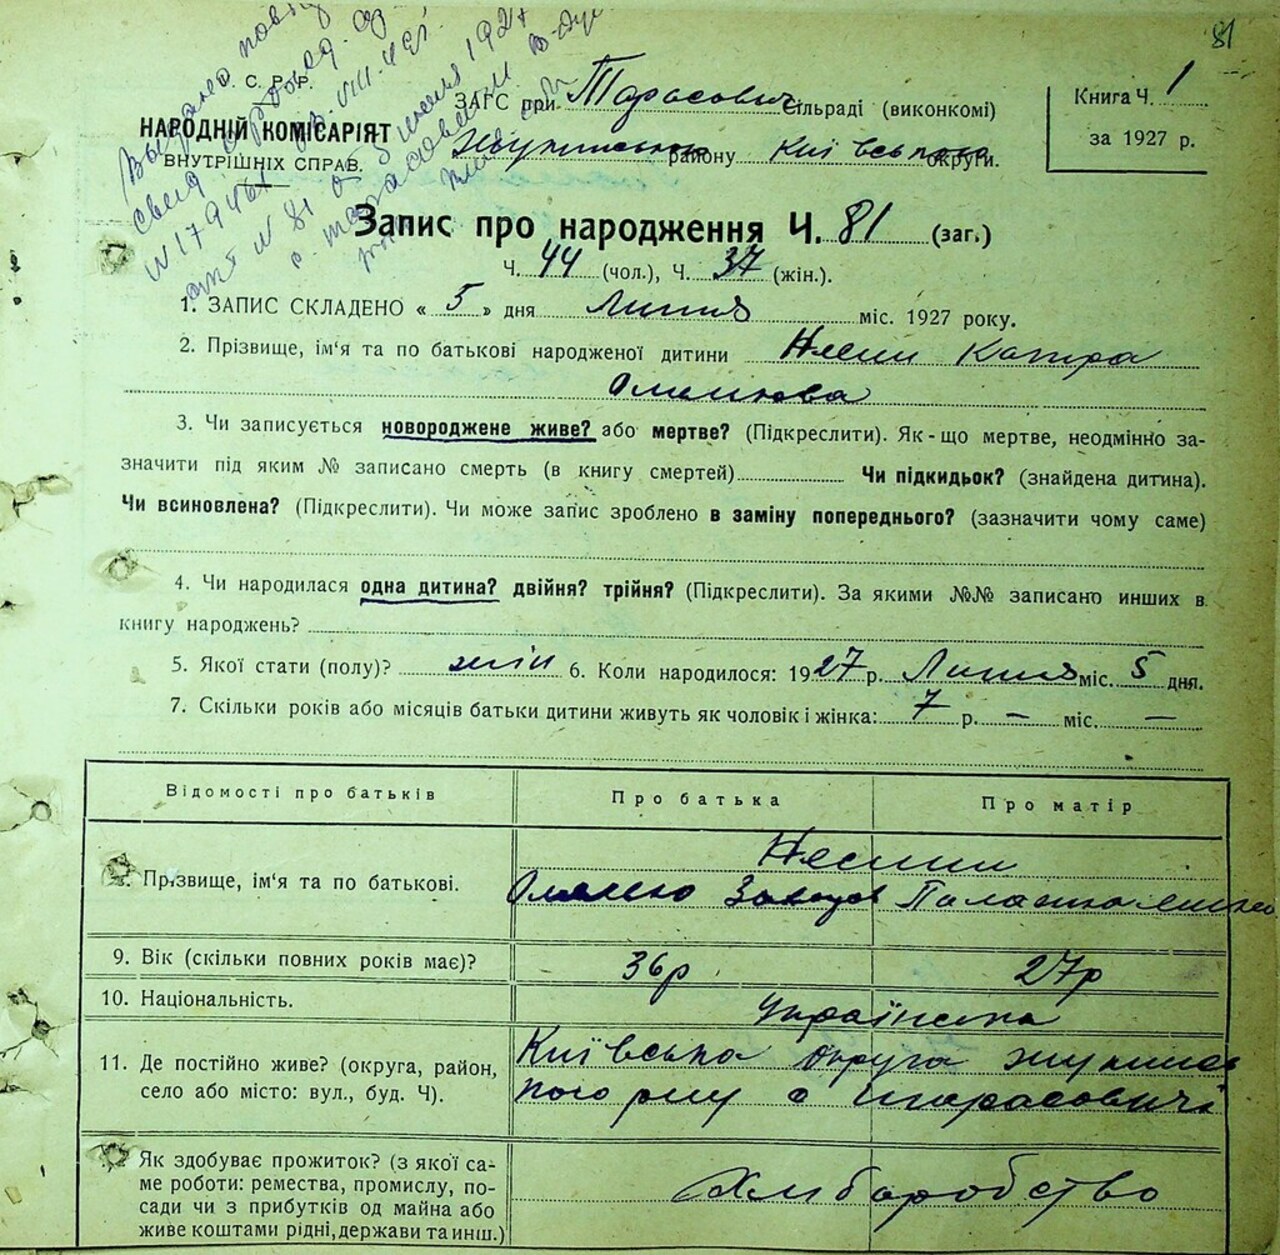 81
Видано повт
свид. о рожд.
N179461
акт N 81 от 5 июля 1927
с. Тарасовичи
С. Р. Р.
НАРОДНІЙ КОМІСАРІЯТ
ВНУТРІШНІХ СПРАВ.
ЗАГС при Тарасович. сільраді (виконкомі)
району Київської округи.
Книга Ч. 1
за 1927 р.
Запис про народження Ч. 81 (заг.)
Ч. 44 (чол.), Ч. 37 (жін.).
1. ЗАПИС СКЛАДЕНО « 5 » дня Липня міс. 1927 року.
2. Прізвище, ім'я та по батькові народженої дитини
3. Чи записується новороджене живе? або мертве? (Підкреслити). Як-що мертве, неодмінно за-
значити під яким № записано смерть (в книгу смертей) Чи підкидьок? (знайдена дитина).
Чи всиновлена? (Підкреслити). Чи може запис зроблено в заміну попереднього? (зазначити чому саме)
4. Чи народилася одна дитина? двійня? трійня? (Підкреслити). За якими №№ записано инших в
книгу народжень?
5. Якої стати (полу)? жін 6. Коли народилося: 1927 р. Липня міс. 5 дня.
7. Скільки років або місяців батьки дитини живуть як чоловік і жінка: 7 р. — міс. —
Відомості про батьків
Про батька
Про матір
Прізвище, ім'я та по батькові.
9. Вік (скільки повних років має)?
36р
27р
10. Національність.
Українська
11. Де постійно живе? (округа, район,
село або місто: вул., буд. Ч).
Київська округа
с Тарасовичі
Як здобуває прожиток? (з якої са-
ме роботи: ремества, промислу, по-
сади чи з прибутків од майна або
живе коштами рідні, держави та инш.)
Хліборобство